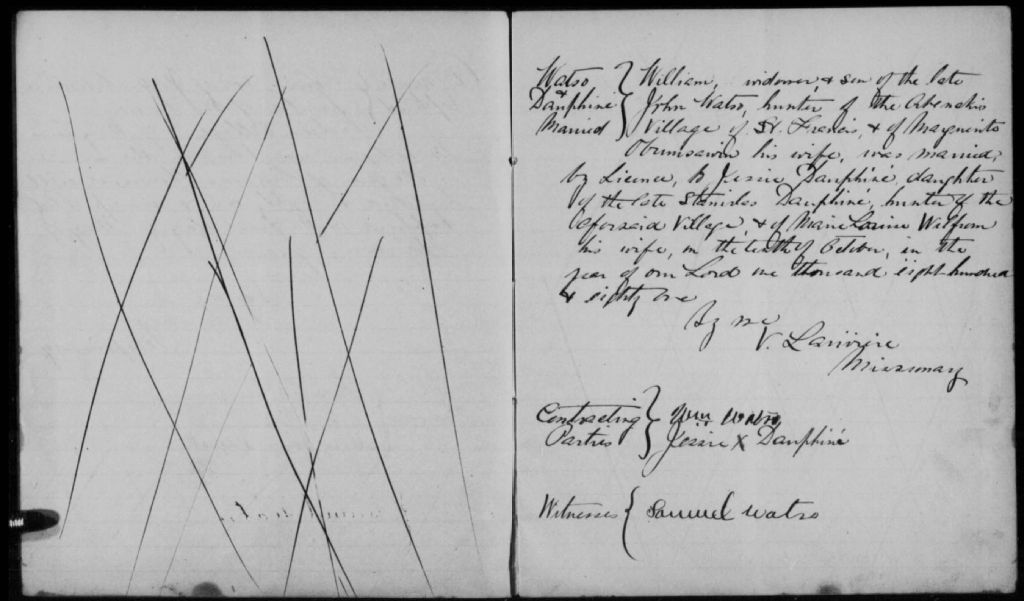 Watso } William, widower, & son of the late
& Dauphine John Watso, hunter of the Abenakis
Married Village of St. Francis, & of Marguerite
Obumsawin his wife, was married,
by Licence, to Jessie Dauphine, daughter
of the late Stanislas Dauphine, hunter of the
aforesaid Village, & of Marie Louise
his wife, on the tenth of October, in the
year of our Lord one thousand eight hundred
& eighty one
by me
V. Lariviere
Missionary
Contracting } Wm Watso
Parties Jessie X Dauphine
Witnesses { Samuel Watso